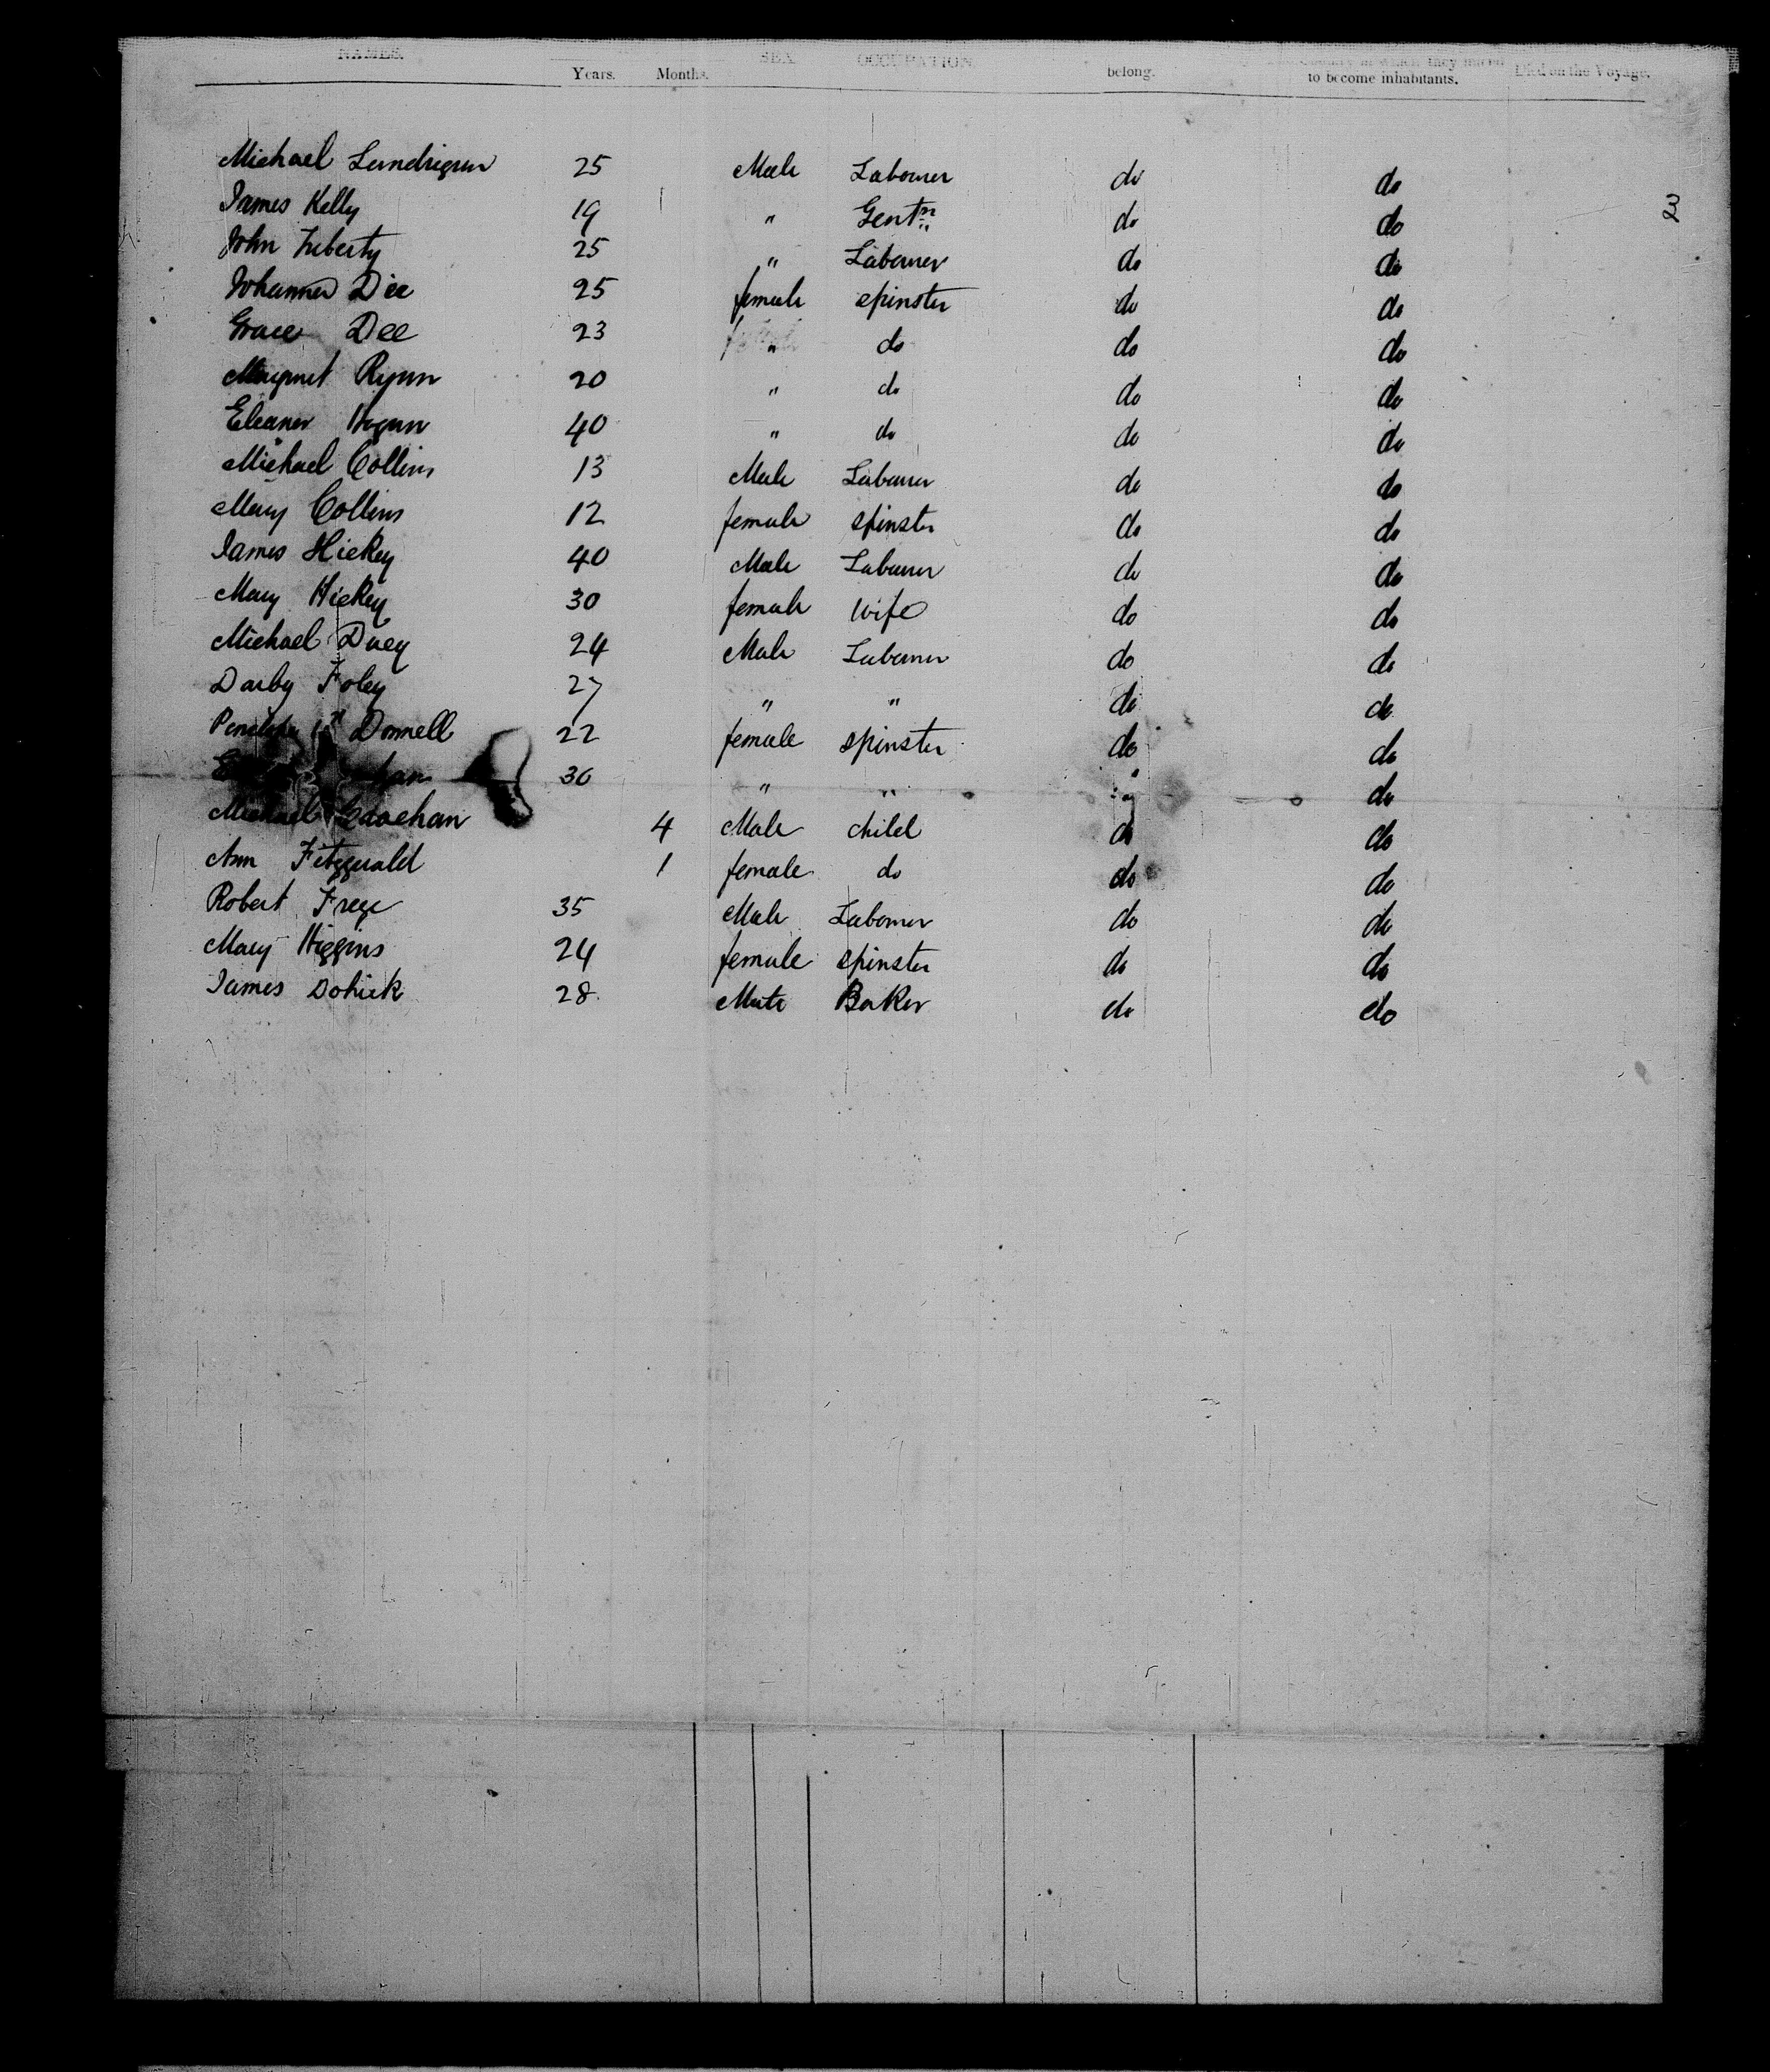 NAMES. SEX OCCUPATION.
Years. Months. belong. to become inhabitants. Died on the Voyage.
Michael Landrigan 25 Male Labourer do do
James Kelly 19 " Gentn do do
John 25 " Labourer do do
Johanna Dee 25 female spinster do do
Grace Dee 23 " do do do
Margret Ryan 20 " do do do
Eleanor Hogan 40 " do do do
Michael Collins 13 Male Labourer do do
Mary Collins 12 female spinster do do
James Hickey 40 Male Labourer do do
Mary Hickey 30 female wife do do
Michael Duey 24 Male Labourer do do
Darby Foley 27 " " do do
Penelope Donnell 22 female spinster do do
30 " " " do
Michael 4 Male child do do
Ann Fitzgerald 1 female do do do
Robert 35 Male Labourer do do
Mary Higgins 24 female spinster do do
James 28 Male Baker do do